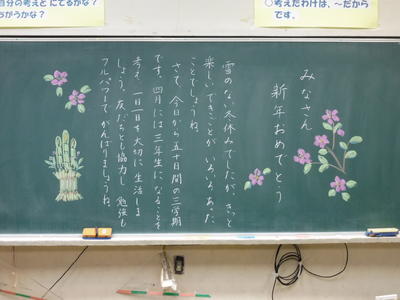 自分の考えとにてるかな?
ちがうかな?
○考えたわけは、~だから
です。
みなさん
新年おめでとう
雪のない冬休みでしたが、きっと
楽しいできごとがいろいろあった
ことでしょうね。
さて、今日から五十日間の三学期
です。四月には三年生になることを
考え、一日一日を大切に生活しま
しょう。友だちとも協力し、勉強も
フルパワーでがんばりましょうね。